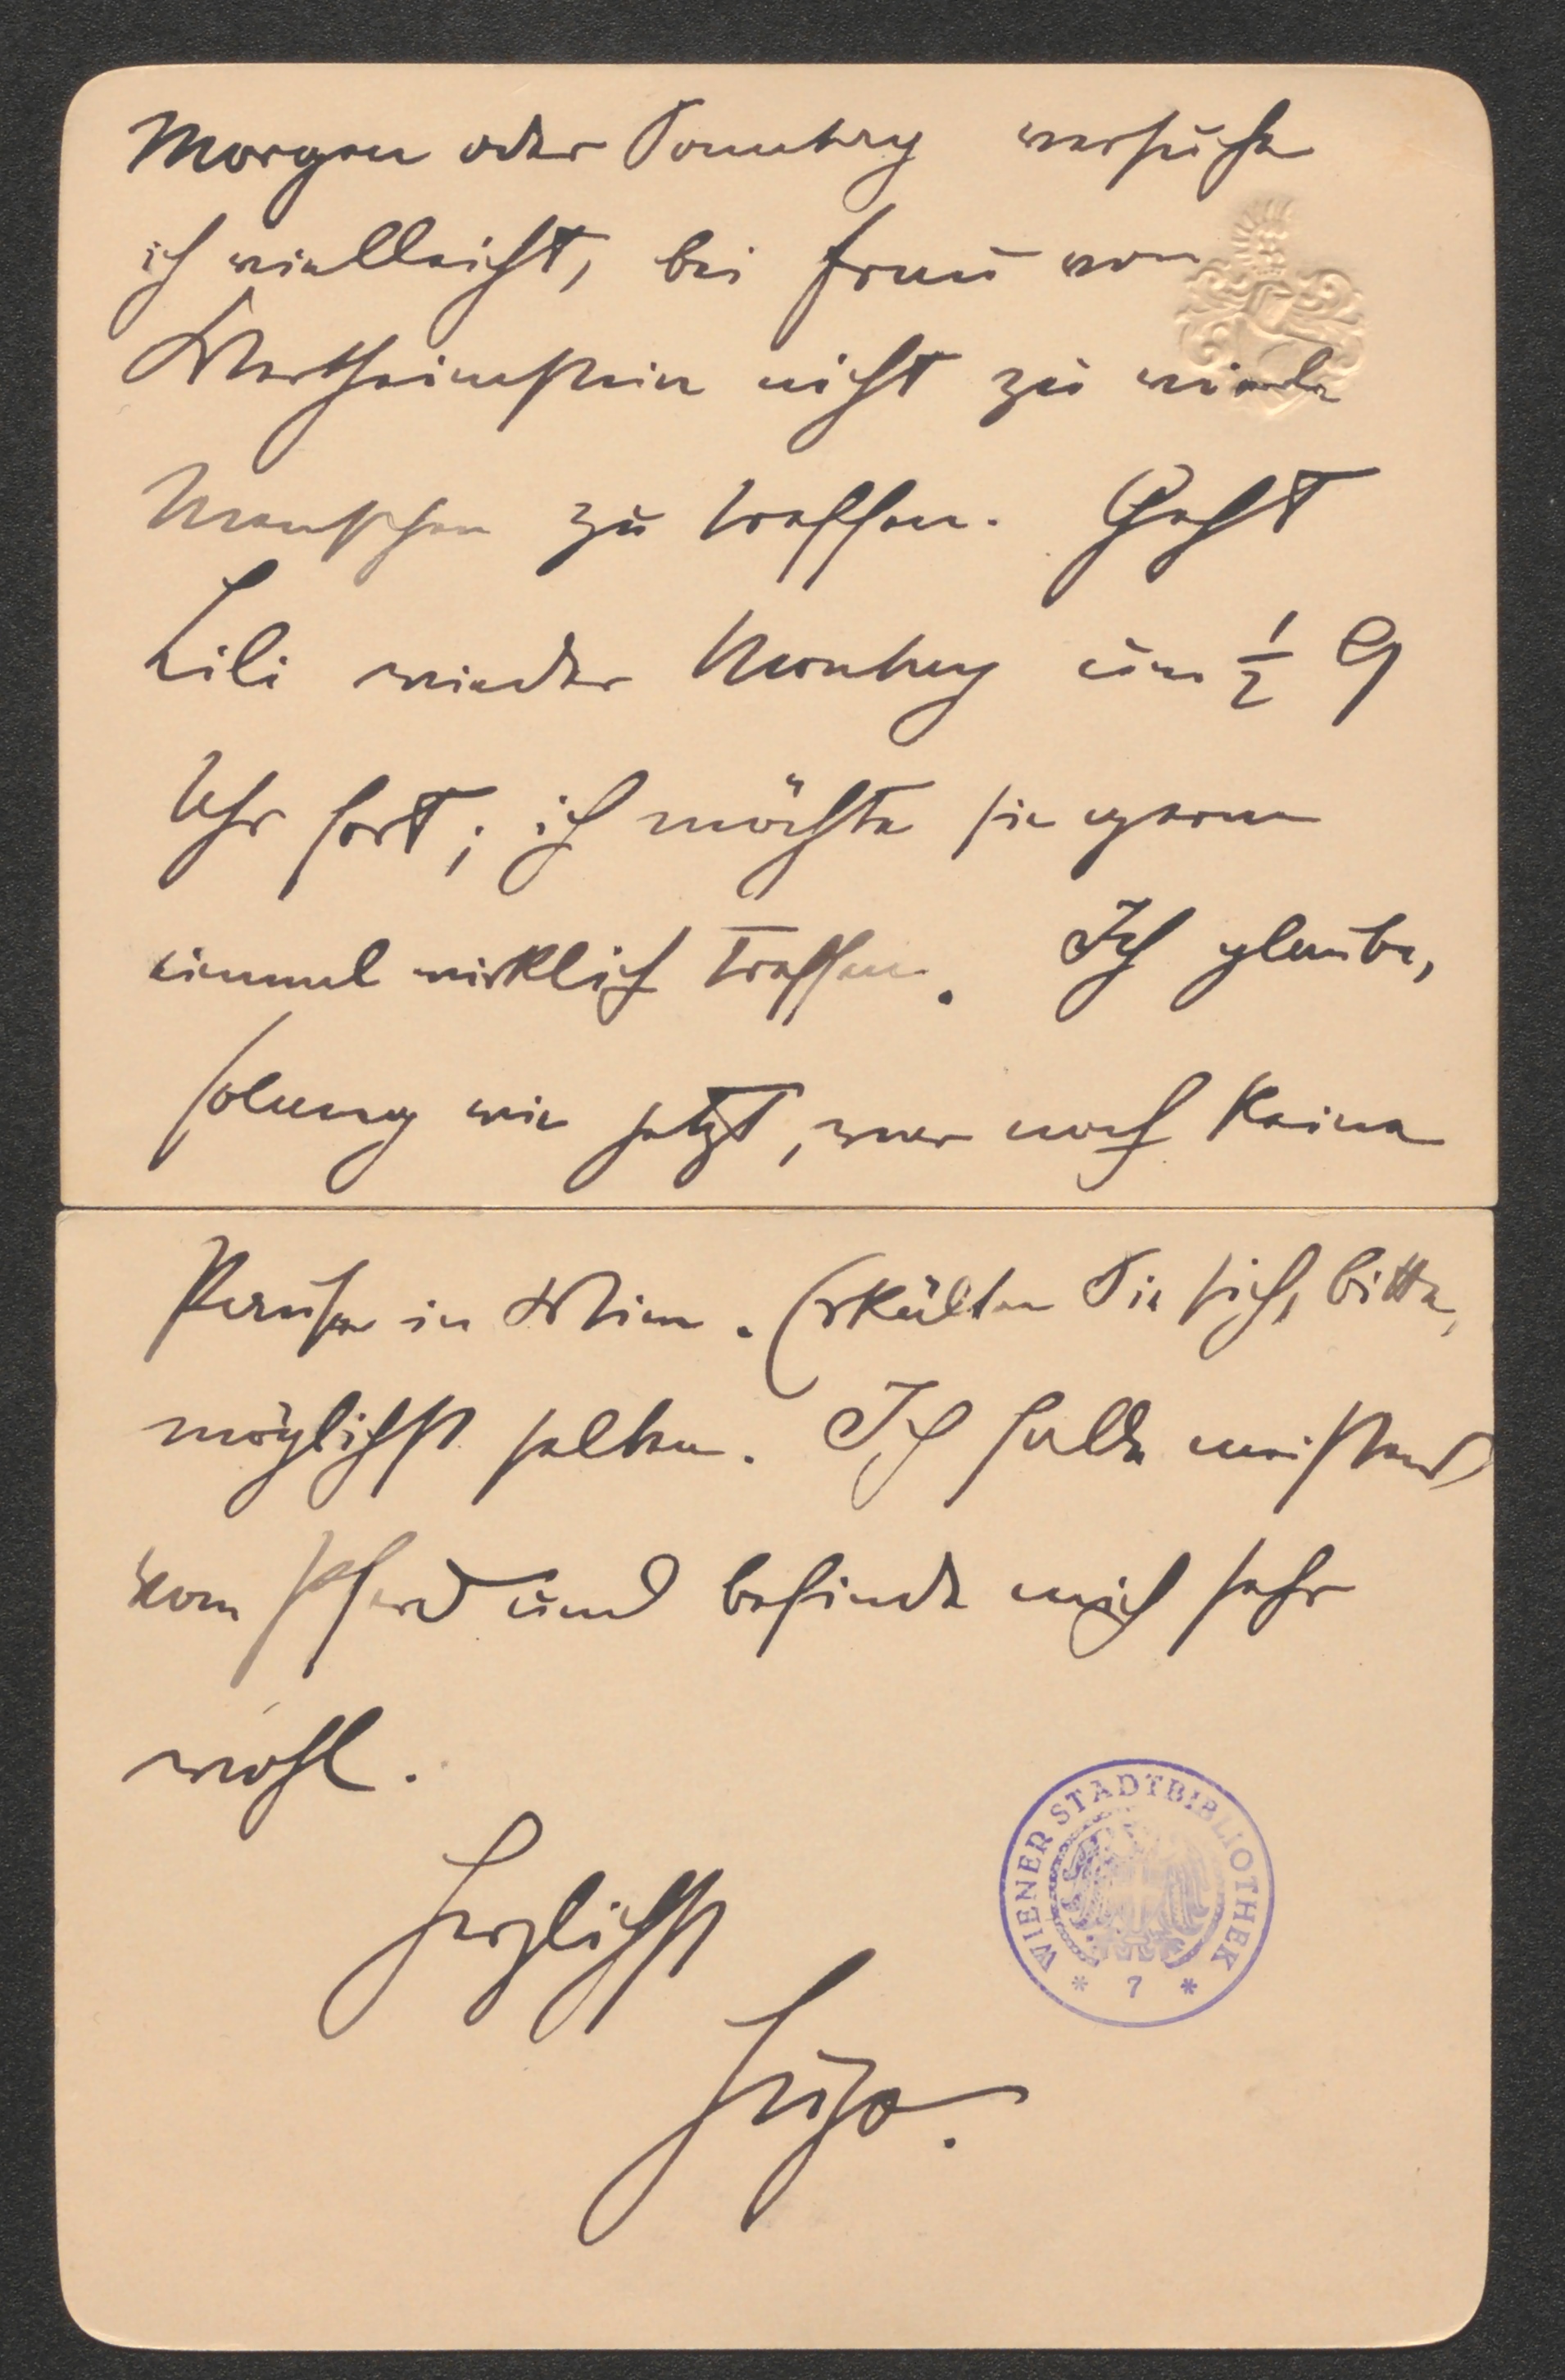 Morgen oder Sonntag versuche
ich vielleicht, bei Frau von
Wertheimstein nicht zu viele
Menschen zu treffen. Geht
Lili wieder Montag um ½ 9
Uhr fort; ich möchte sie gern
einmal wirklich treffen. Ich glaube,
solang wie jetzt, war noch keine
Pause in Wien. Erkälten Sie sich, bitte,
möglichst selten. Ich falle meistens
vom Pferd und befinde mich sehr
wohl.
Herzlichst
Hugo.
WIENER STADTBIBLIOTHEK
* 7 *